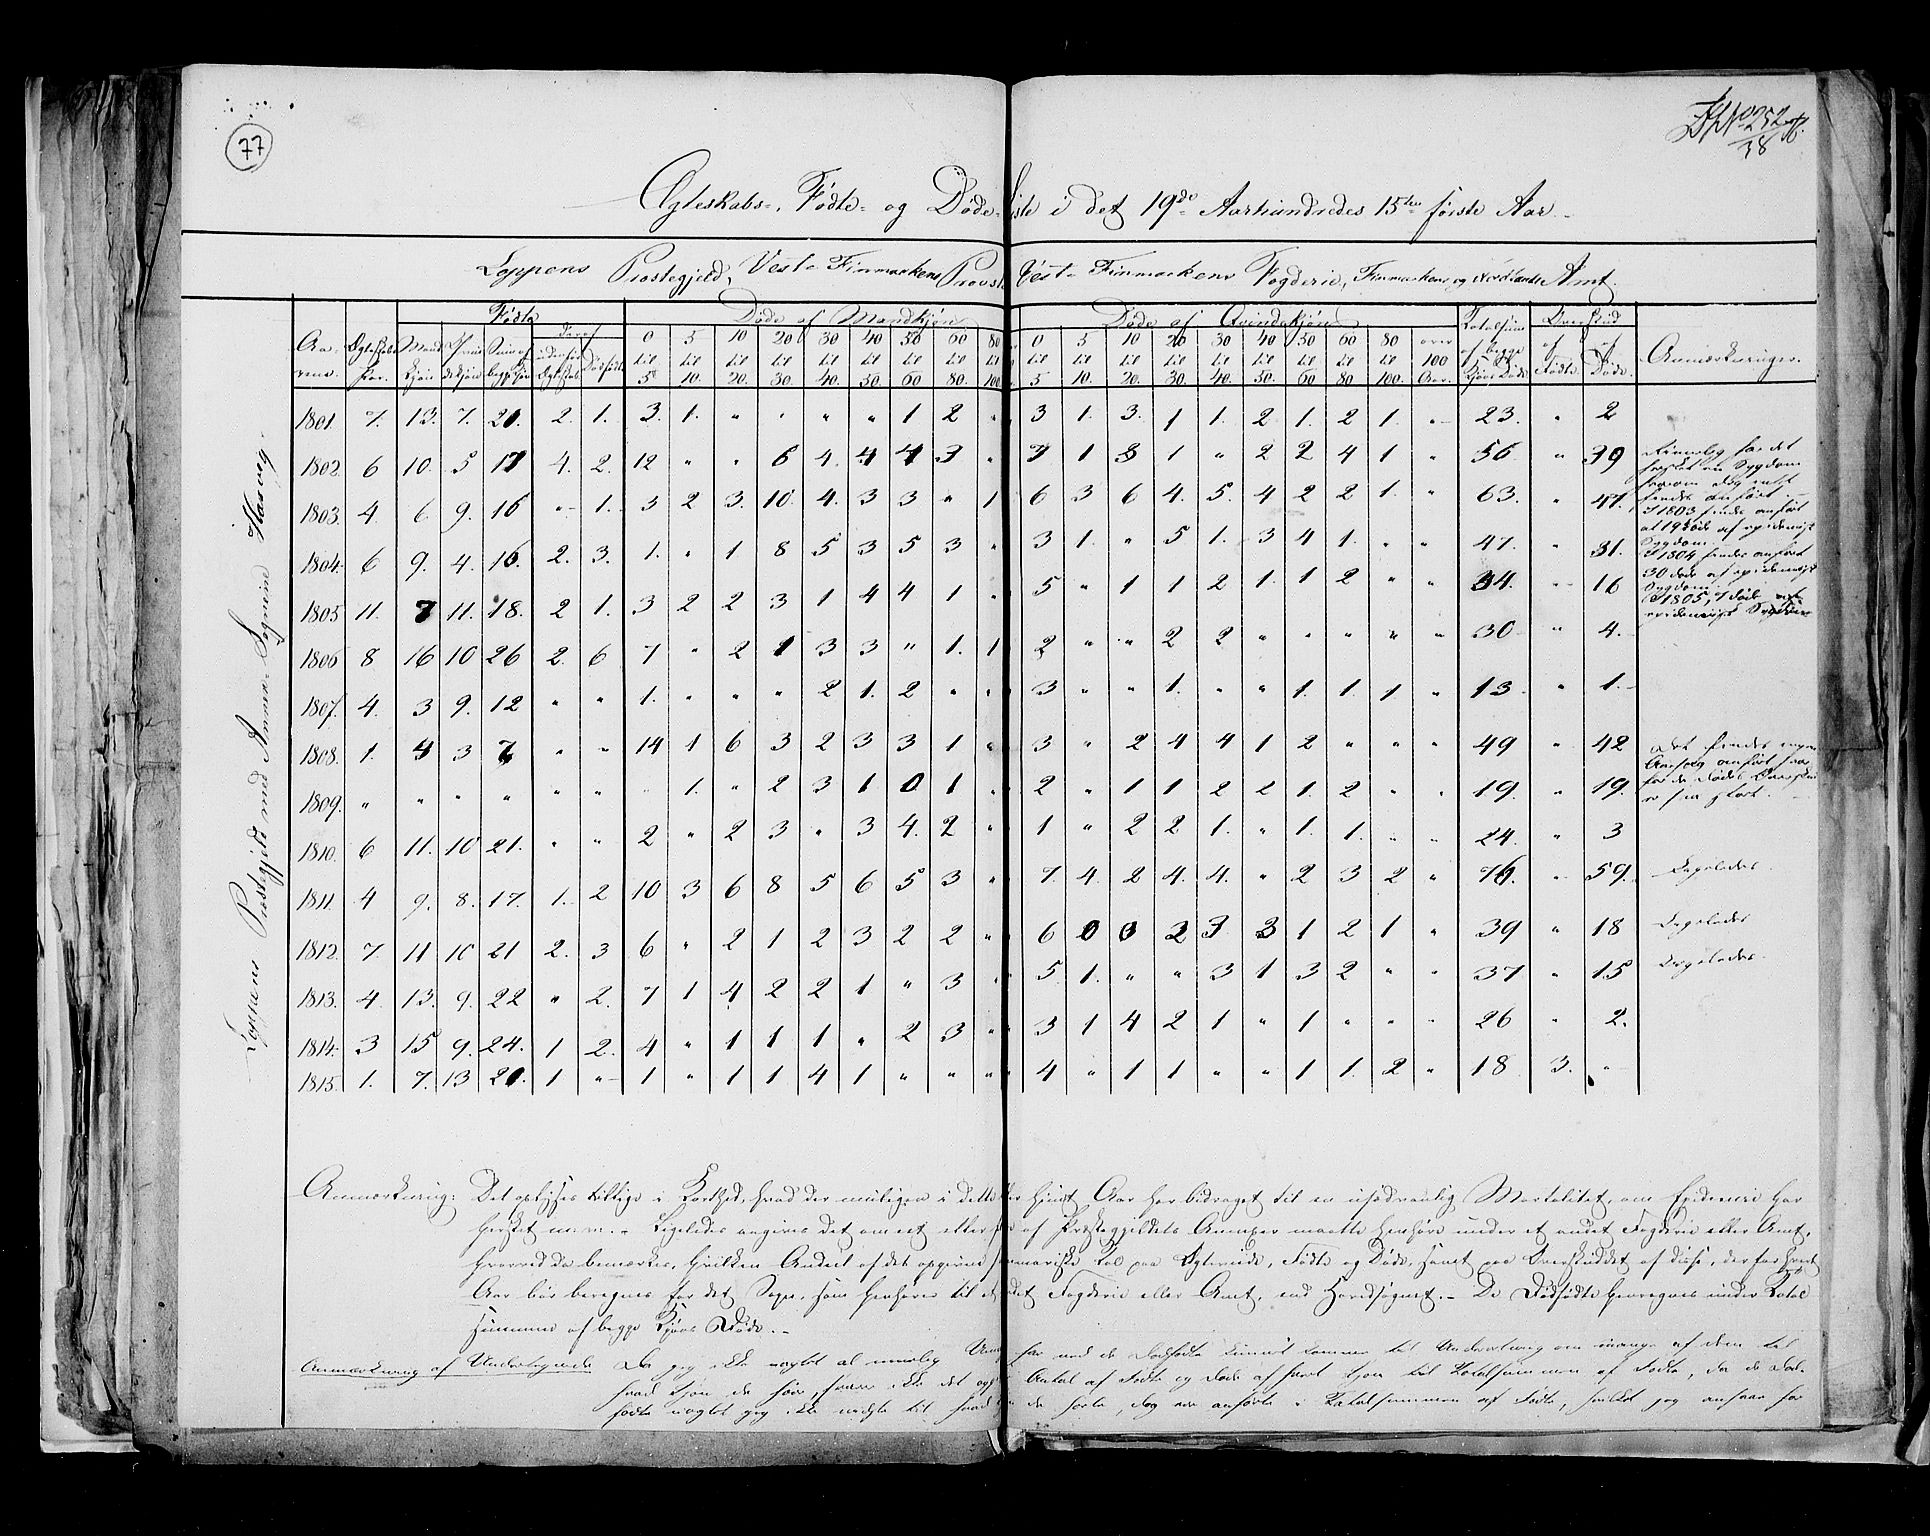 77
Ægteskabs-, Fødte- og Døde-Liste i det 19de Aarhundredes 15ten første Aar
Loppens Præstegjeld, Vest-Finmarkens Provstie Vest-Finmarkens Fogderie, Finmarkens og Nordlands Amt.
Loppens Præstegjeld med Annex-Sognene Hasvig
Fødte | Døde af Mandkjøn | Døde af Qvindekjøn | Totalsum af begge Kjøns Døde | Overskud
Aarene. | Ægteskabs Par. | Mand Kjøn | Qvinde Kjøn | Sum af begge Kjøn | Deraf udenfor Ægteskab | Dødfødte | 0 til 5 | 5 til 10. | 10 til 20. | 20 til 30. | 30 til 40. | 40 til 50. | 50 til 60 | 60 til 80. | 80 100. | 0 til 5 | 5 til 10. | 10 til 20. | 20 til 30. | 30 til 40. | 40 til 50. | 50 til 60 | 60 til 80 | 80 til 100. | over 100 Aar. | af Fødte. | af Døde. | Anmærkninger.
1801. 7. 13. 7. 20. 2. 1. 3. 1. " " " " 1 2 " 3 1. 3. 1 1. 2. 1. 2 1. " 23. " 2
1802. 6 10. 5 17 4. 2. 12 " " 6 4. 4 4 3 " 7 1 3 1 " 2 2 4 1 " 56 " 39
1803. 4. 6. 9. 16 " 1. 3 2 3. 10. 4. 3 3 " 1 6 3 6 4. 5. 4 2 2 1. " 63. " 47.
1804. 6 9. 4. 16. 2. 3. 1. " 1 8 5 3 5 3 " 3 1. " 5 1. 3 4 1. " " 47. " 31.
1805 11. 7 11. 18. 2 1. 3 2 2 3 1 4 4 1 " 5 " 1 1 2 1. 1 2 " " 34. " 16
1806 8 16 10 26 2. 6 7 " 2 1 3 3 " 1. 1 2 " " 2 2 " " " " " 30 " 4.
1807. 4. 3 9. 12 " " 1. " " " 2 1. 2 " " 3 " " 1. " " 1. 1. 1 " 13 " 1.
1808. 1. 4 3 7. " " 14 1 6 3 2 3 3 1 " 3 " 2 4 4 1 2 " " " 49 " 42
1809. " " " " " " " 1. " 2 3 1 0 1 " 2 " 1 1 2 2 1 2 " " 19. " 19.
1810. 6 11. 10 21. " " 2 " 2 3 " 3 4. 2 " 1 " 2 2 1. " 1. 1. " " 24. " 3
1811. 4 9. 8. 17. 1. 2 10 3 6 8 5 6 5 3 " 7. 4. 2 4. 4. " 2 3 2 " 76. " 59.
1812. 7. 11 10 21 2. 3 6 " 2 1 2 3 2 2 " 6 0 0 2 3 3 1 2 1 " 39 " 18
1813. 4. 13. 9. 22 " 2. 7 1 4 2 2 1 " 3 " 5 1. " " 3 1 3 2 " " 37 " 15
1814. 3 15 9. 24. 1 2. 4 " 1 1 1 " 2 3 " 3 1 4 2 1 " 1 " " " 26 " 2.
1815. 1. 7. 13 20. 1 " 1 " 1 1 4 1 " " " 4 " 1 1 " " 1 1. 2 " 18 3. "
Rimelig har det
hersket en Sygdom
findes anført
I 1803 findes anført
at 19 døde af epidemisk
Sygdom.
I 1804 findes anført
30 døde af epidemisk
Sygdom.
I 1805, 7 døde af
epidemisk Sygdom
Det findes ingen
Aarsag anført
for de Dødes Overskud
er saa stort.
Ligeledes
Ligeledes
Ligeledes.
Anmærkning: Det oplyses tillige i Korthed, hvad der muligen i dette eller hiint Aar har bidraget til en usædvanlig Mortalitet, om Epidemie har
hersket m. m. - Ligeledes angives det om eet eller flere af Præstegjeldets Annexer maatte henhøre under et andet Fogderie eller Amt,
hvorved da bemærkes, hvilken Andeel af det opgivne summariske Tal paa Ægteviede, Fødte og Døde, samt paa Overskuddet af disse, der for hvert
Aar bør beregnes for det Sogn, som henhører til et andet Fogderie eller Amt, end Hovedsognet. - De Dødfødte henregnes under Total
Summen af begge Kjøns Døde. -
Anmærkning af Undertegnede Da jeg ikke
Antal af Fødte og døde af hvert Kjøn til Totalsummen af Fødte, da de Død-